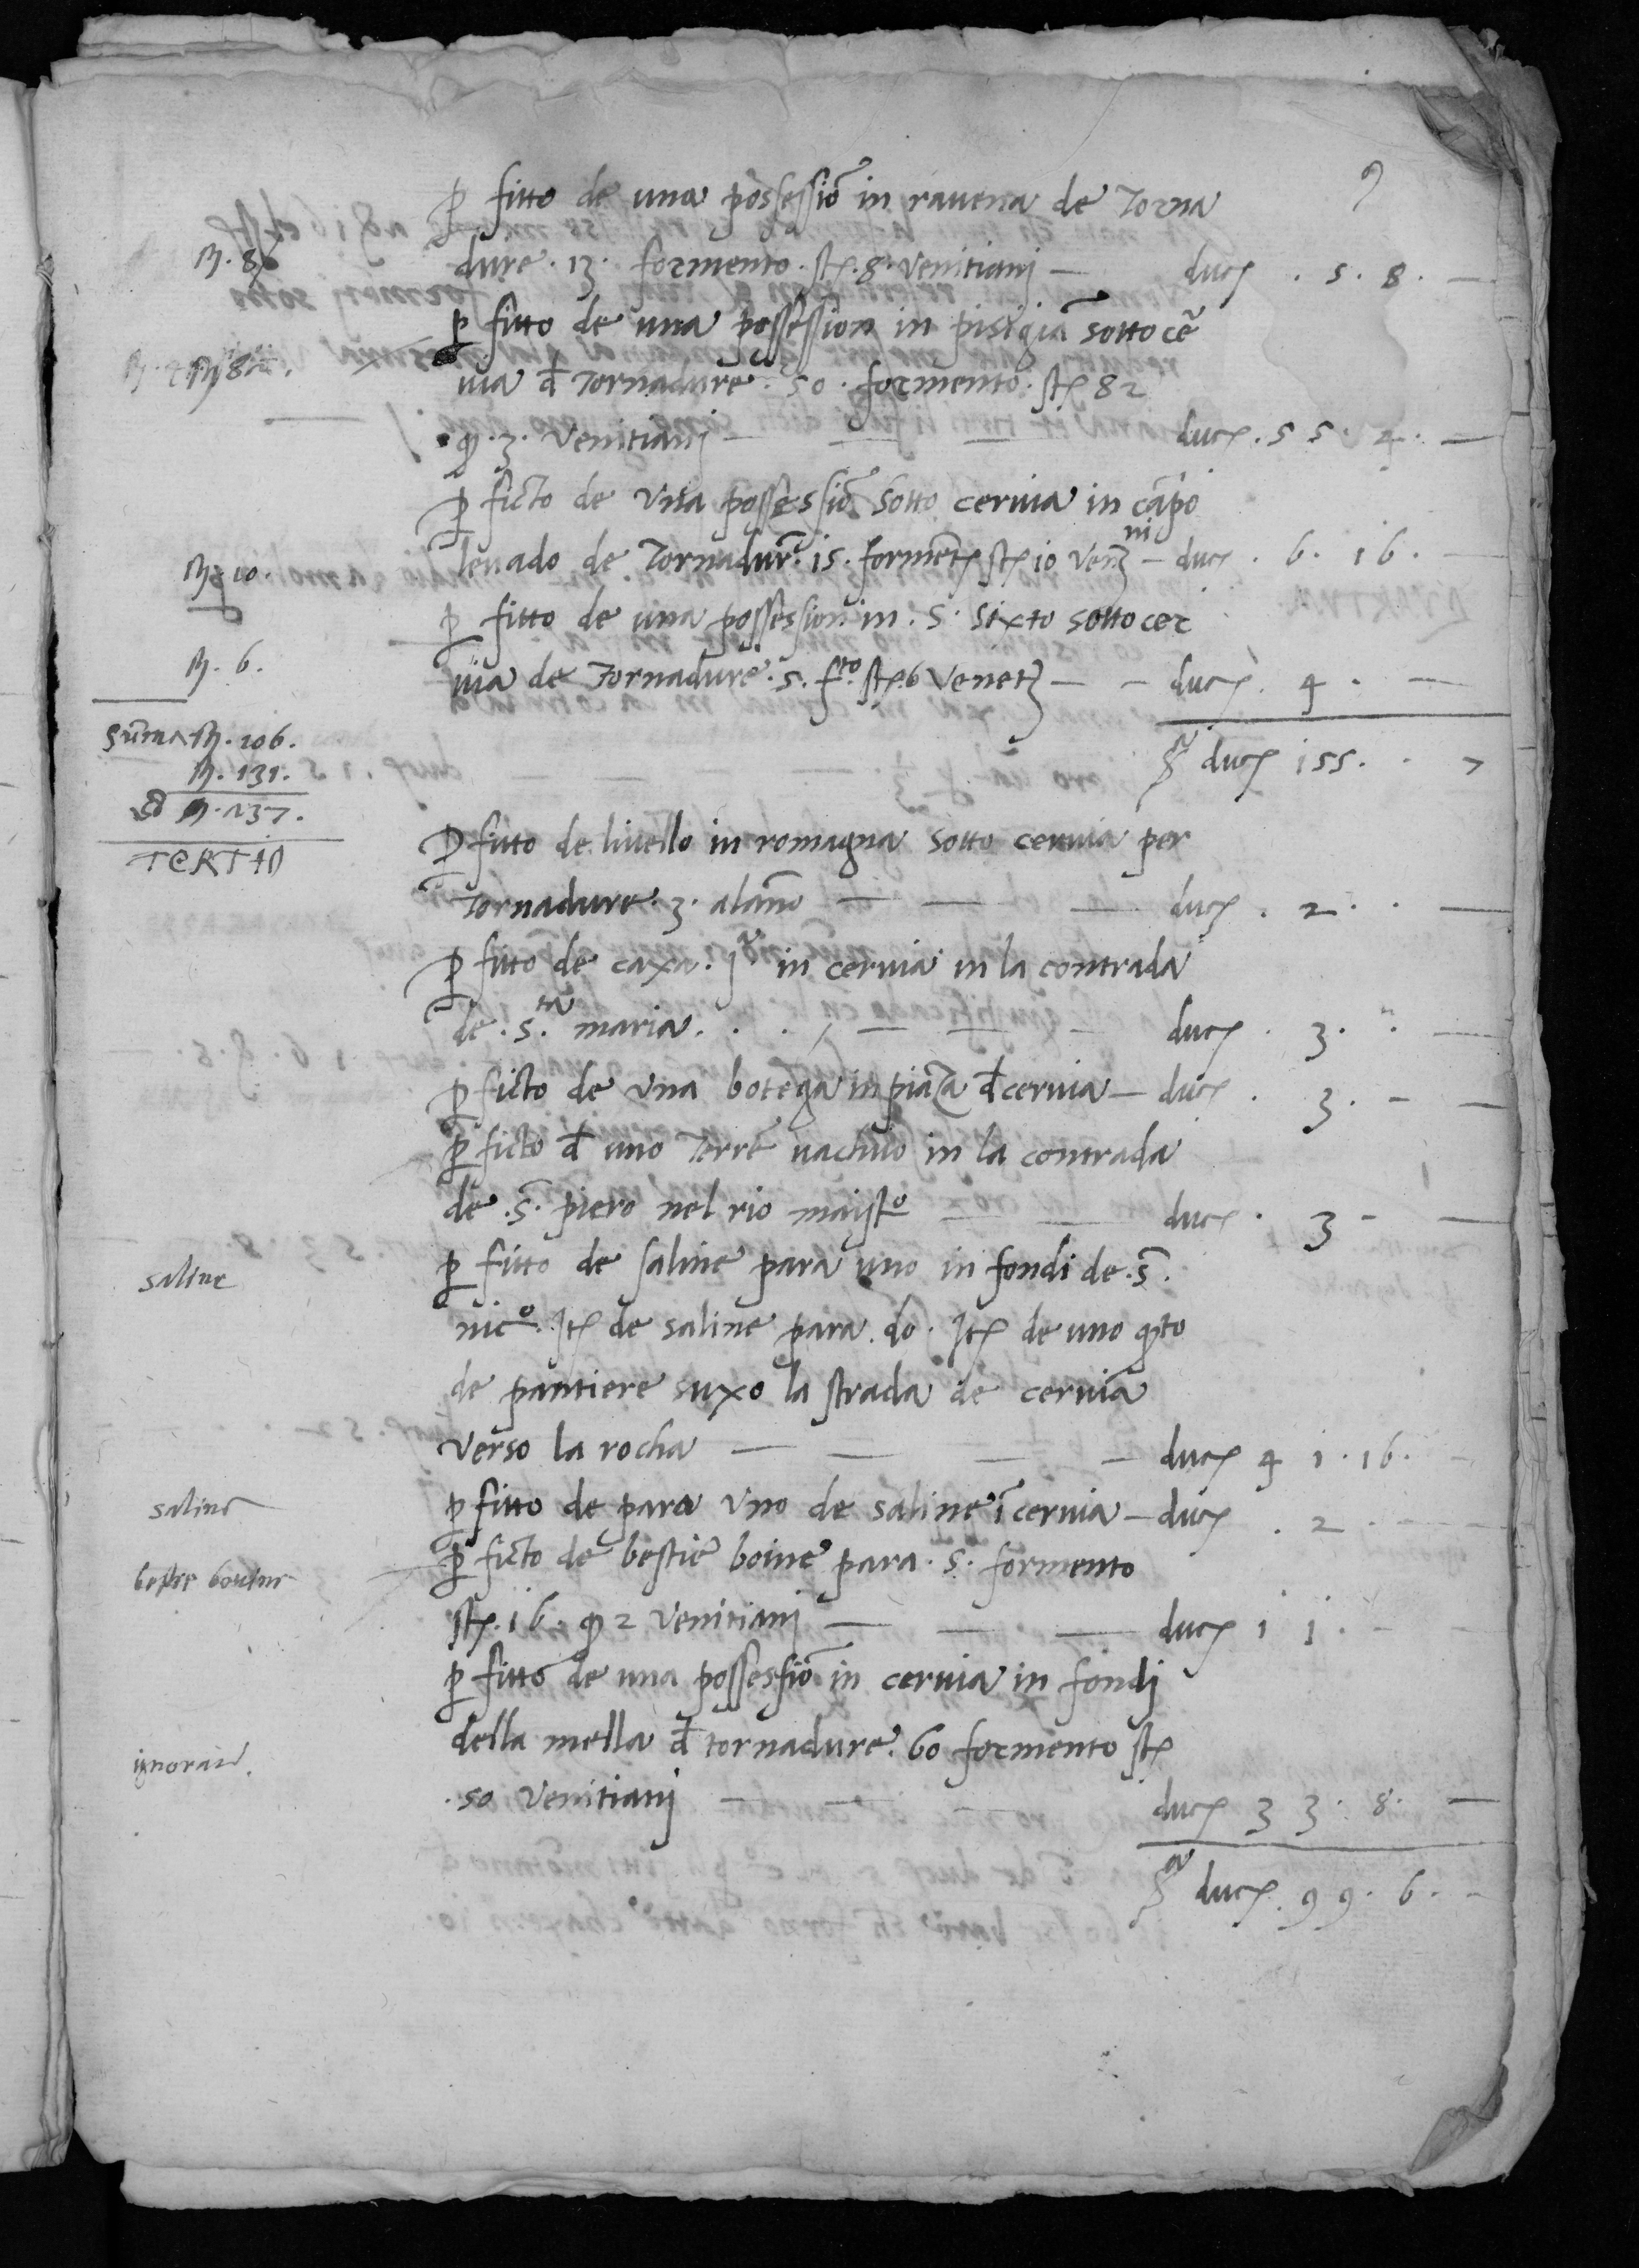 9
ꝑ fitto de una possessiō in rauena de Torna
dure . 13 . formento . st. 8 . venitianj — duc. . 5 . 8 . —
ꝑ fitto de una possession in pisigiā sotto cē
uia đ Tornadure . 50 . formento . st. 82
. q. 3 . venitianj — — duc. . 55 . 4 . —
ꝑ ficto de vna possessiō sotto ceruia in cāpo
leuado de Tornadur̄ . 15 . forment. st. 10 Ven. ni — duc. . 6 . 16 . —
ꝑ fitto de una possession in . S . Sixto sotto cer
uia de Tornadure . 5 . fto. st. 6 Venet. — — duc. . 4 . —
Sa duc. 155 . . 7
ꝑ fitto de liuello in romagna sotto ceruia per
Tornadure . 3 . alāno — — — duc. . 2 . . —
ꝑ fitto de caxa . ja in ceruia in la contrada
de . S.ta maria . . . — — — duc. . 3 . . —
ꝑ ficto de vna botega in piaza đ ceruia — duc. . 3 . — —
ꝑ ficto đ uno Terrē uachuo in la contrada
de . S̄ . piero nel rio maisto — — duc. . 3 — —
ꝑ fitto de saline para uno in fondi de . S̄ .
nico . It. de saline para . do . It. de uno q.to
de pantiere suxo la strada de ceruia
verso la rocha — — — duc. 41 . 16 . —
ꝑ fitto de para vno de saline ī ceruia — duc. . 2 . —
ꝑ ficto de bestie boine para . 5 . formento
st. 16 . q. 2 venitianj — — — duc. 1 j . — —
ꝑ fitto de una possessiō in ceruia in fondi
della mella đ tornadure . 60 formento st.
. 50 venitianj — — — duc. 33 . 8 . —
Sa duc. . 99 . 6 . —
M. 8
M. 10 .
M. 6 .
Sūma M. 106 .
M. 131 .
M. 137 .
TERTIO
saline
saline
bestie bouine